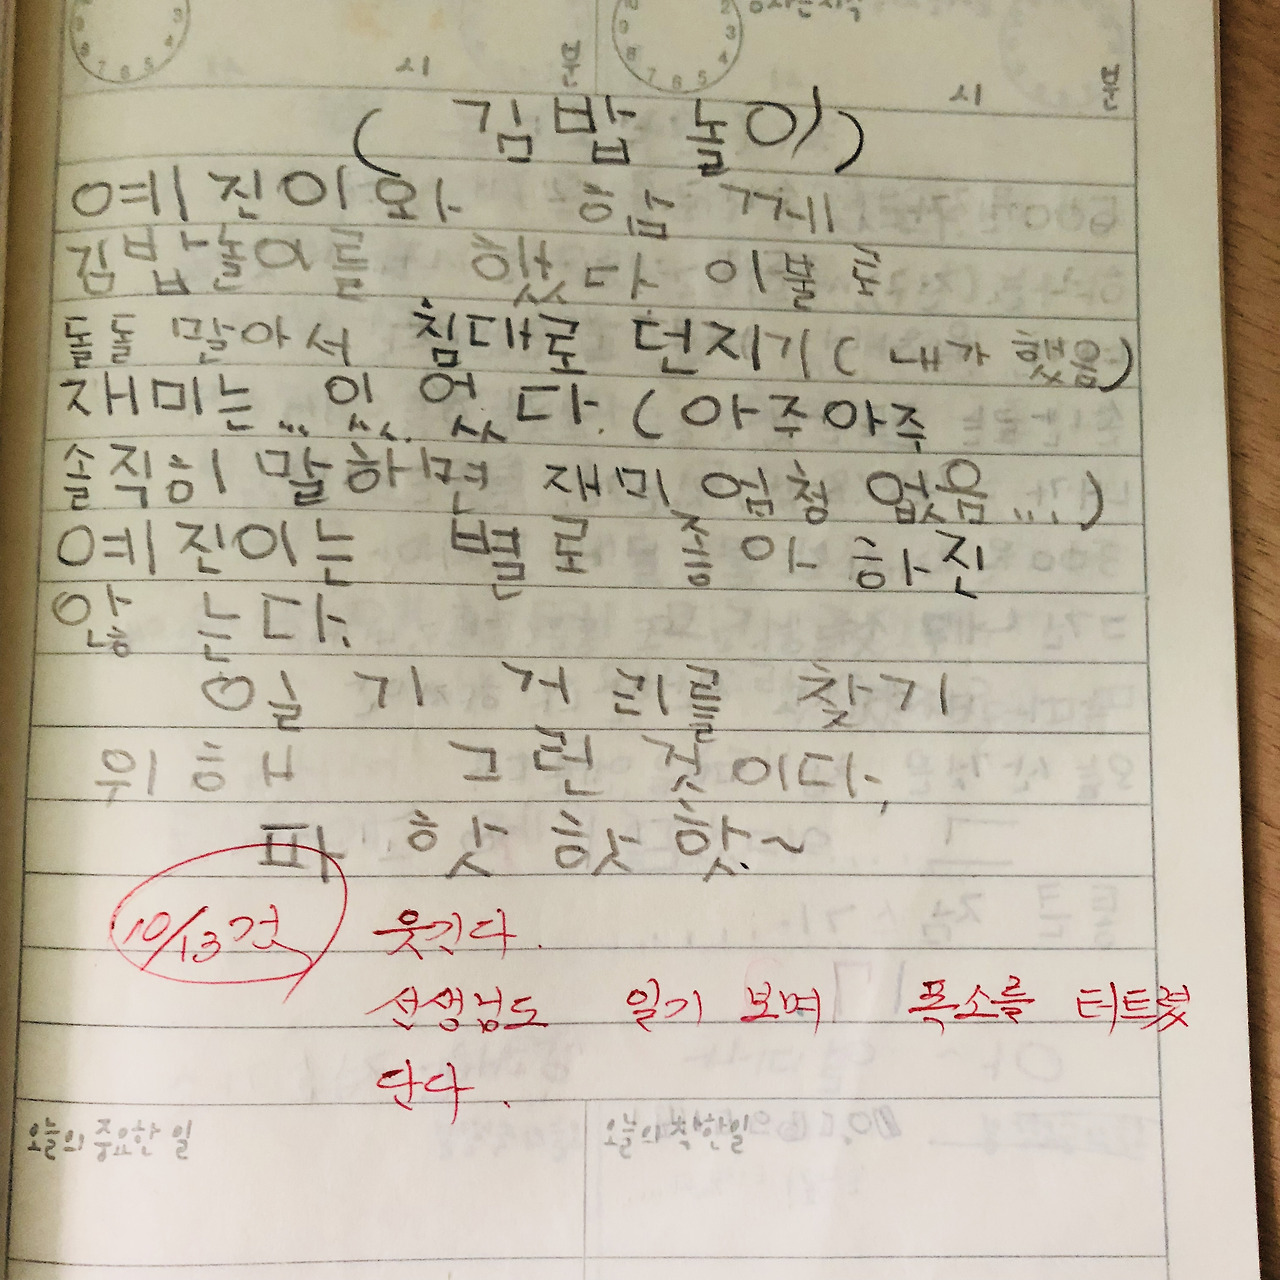 시 분 시 분
( 김밥 놀이 )
예진이와 함께
김밥놀이를 했다 이불로
돌돌 말아서 침대로 던지기 ( 내가 했음)
재미는... 있었다. (아주아주
솔직히 말하면 재미 엄청 없음...)
예진이는 별로 좋아 하진
않는다.
일기 거리를 찾기
위해 그런 것이다.
파 핫 핫 핫~
10/13 검 웃긴다.
선생님도 일기 보며 폭소를 터트렸
단다.
오늘의 중요한 일 오늘의 착한일